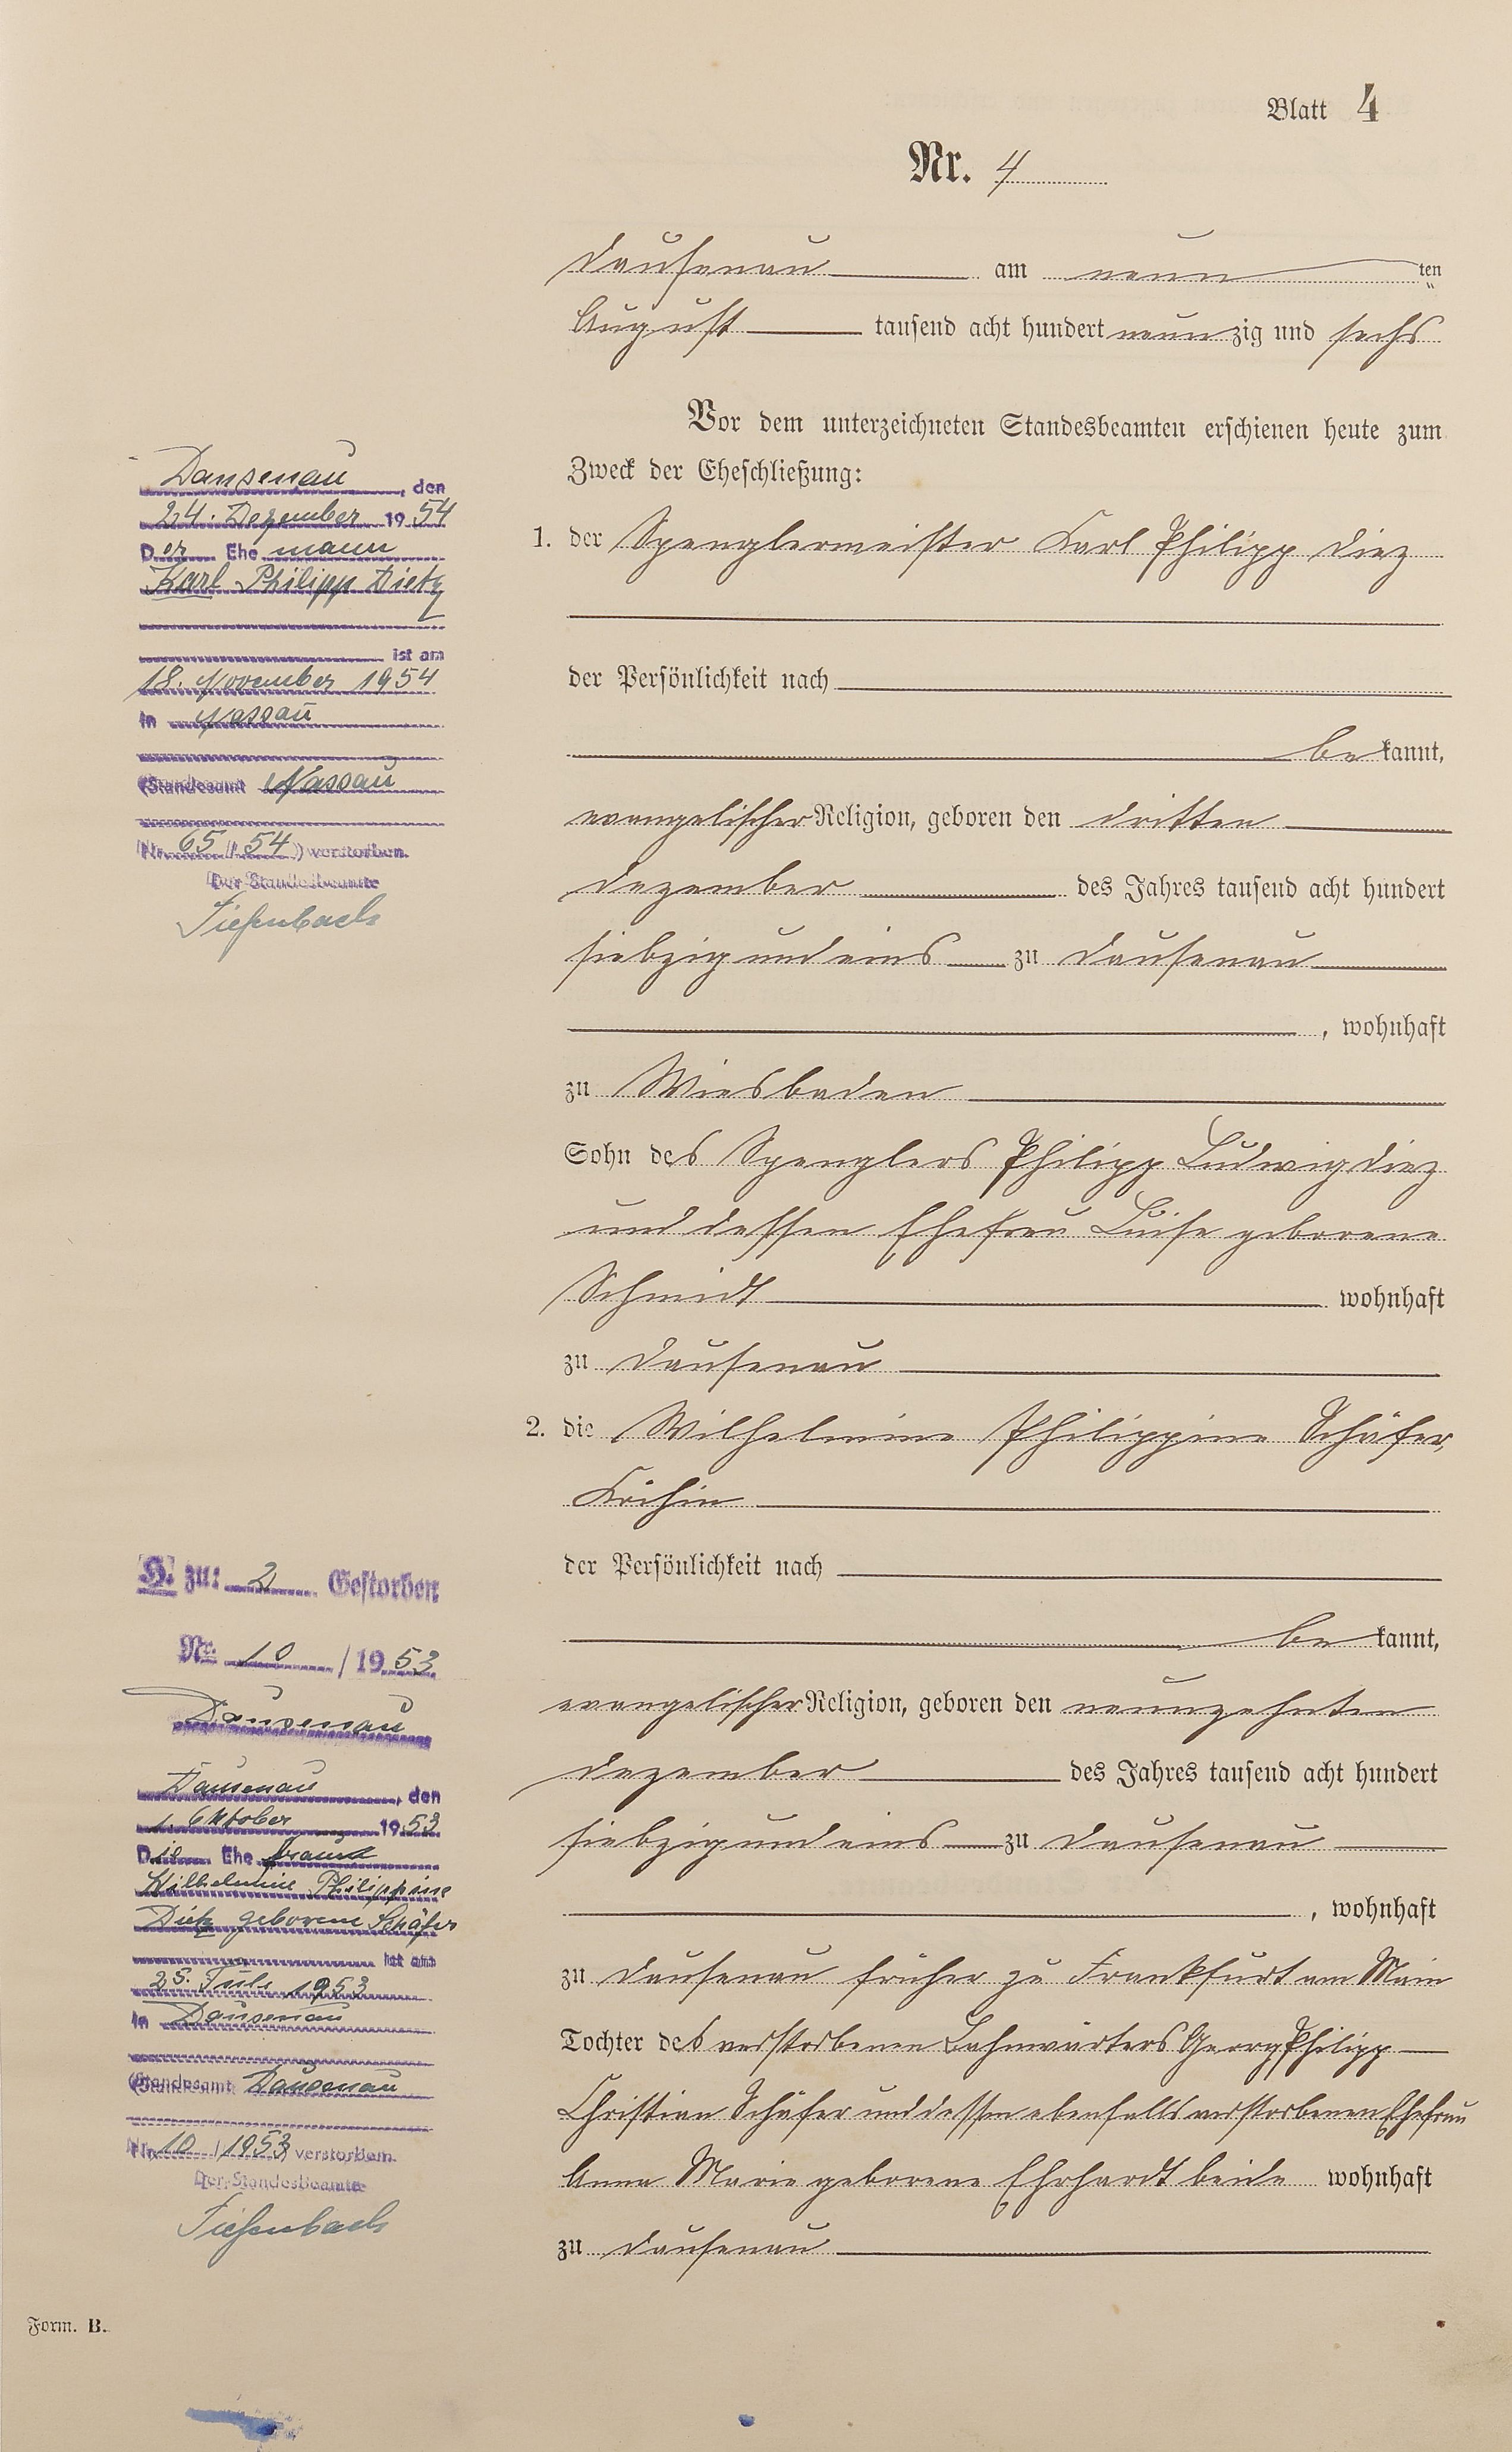 Blatt 4
Nr. 4
Dausenau am neun ten
August tausend acht hundert neunzig und sechs
Vor dem unterzeichneten Standesbeamten erschienen heute zum
Zweck der Eheschließung:
1. der Spenglermeister Karl Philipp Diez
der Persönlichkeit nach
be kannt,
evangelischer Religion, geboren den dritten
Dezember des Jahres tausend acht hundert
siebzig und eins zu Dausenau
, wohnhaft
zu Wiesbaden
Sohn des Spenglers Philipp Ludwig Diez
und dessen Ehefrau Luise geborene
Schmidt wohnhaft
zu Dausenau
2. die Wilhelmine Philippine Schäfer,
Köchin
der Persönlichkeit nach
be kannt,
evangelischer Religion, geboren den neunzehnten
Dezember des Jahres tausend acht hundert
siebzig und eins zu Dausenau
, wohnhaft
zu Dausenau früher zu Frankfurt am Main
Tochter des verstorbenen Bahnwärters Georg Philipp
Christian Schäfer und dessen ebenfalls verstorbenen Ehefrau
Anna Marie geborene Ehrhardt beide wohnhaft
zu Dausenau
Dausenau, den
24. Dezember 1954
Der Ehemann
Karl Philipp Dietz
ist am
18. November 1954
in Nassau
(Standesamt Nassau
Nr. 65 / 54) verstorben.
Der Standesbeamte
Tiefenbach
H. zu: 2 Gestorben
Nr. 10 / 1953
Dausenau
Dausenau, den
1. Oktober 1953
Die Ehefrau
Wilhelmine Philippine
Dietz geborene Schäfer
ist am
25. Juli 1953
in Dausenau
(Standesamt Dausenau
Nr. 10 / 1953) verstorben.
Der Standesbeamte
Tiefenbach
Form. B.